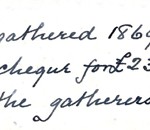 gathered 1869
chequr for £23
the gatherers